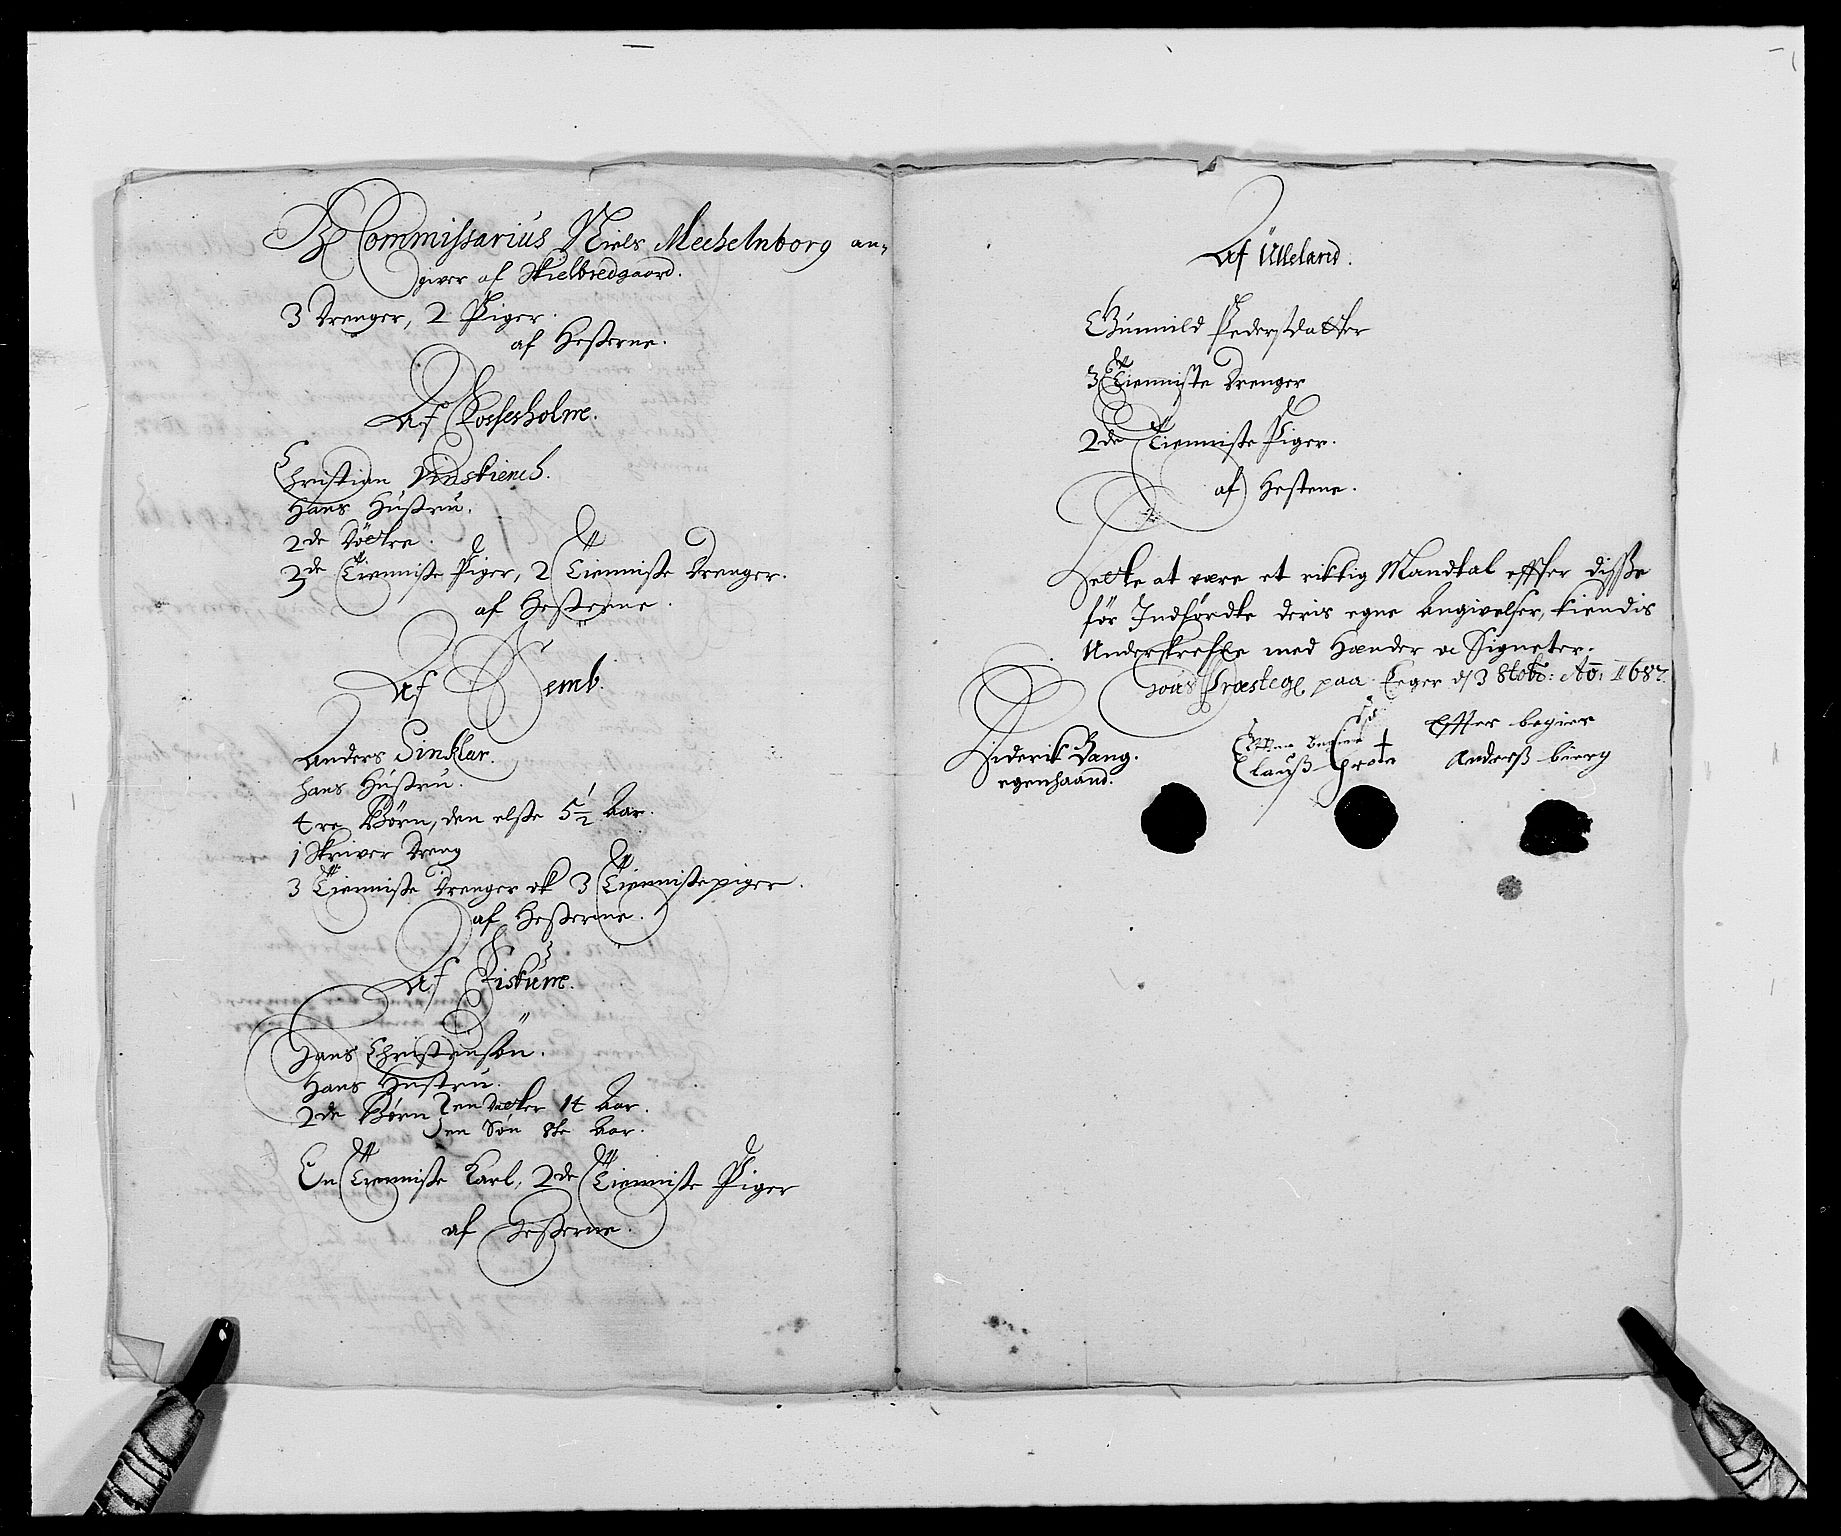 H Commissarius Niels Mechelnborg an-
giver af Skielbredgaard.
3 Drenger, 2 Piger.
af Hesterne.
Af Fossesholm.
Christian Vinskiench.
Hans Hustru.
2de Döttre.
3de Tienniste Piger, 2 Tienniste Drenger.
af Hesterne.
Af Semb.
Anders Sinklar.
hans Hustru.
4re Börn, den elste 5 1/2 Aar.
1 Skriver Dreng
3 Tienniste Drenger ok 3 Tienniste piger.
af Hesterne.
Af Fiskum.
Hans Christensön.
Hans Hustru.
2de Börn en Datter 14 Aar.
en Sön 8te Aar.
En Tienniste Karl, 2de Tienniste Piger
af Hesterne.
Af Ulleland.
Gunnild Pedersdatter
3 Tienniste Drenger
2de Tienniste Piger.
af Hestene.
Dette at være et riktig Mandtal effter disse
för Indfördte deris egne Angivelser, kiendis
Underskrefne med Hænder oc Signeter.
Præsteg paa Eger d 3 8tobr: Ao: 1687.
Diderik Bang.
egenhaand.
Effter begier
Clauss Grote
Effter begier
Anderss bierg